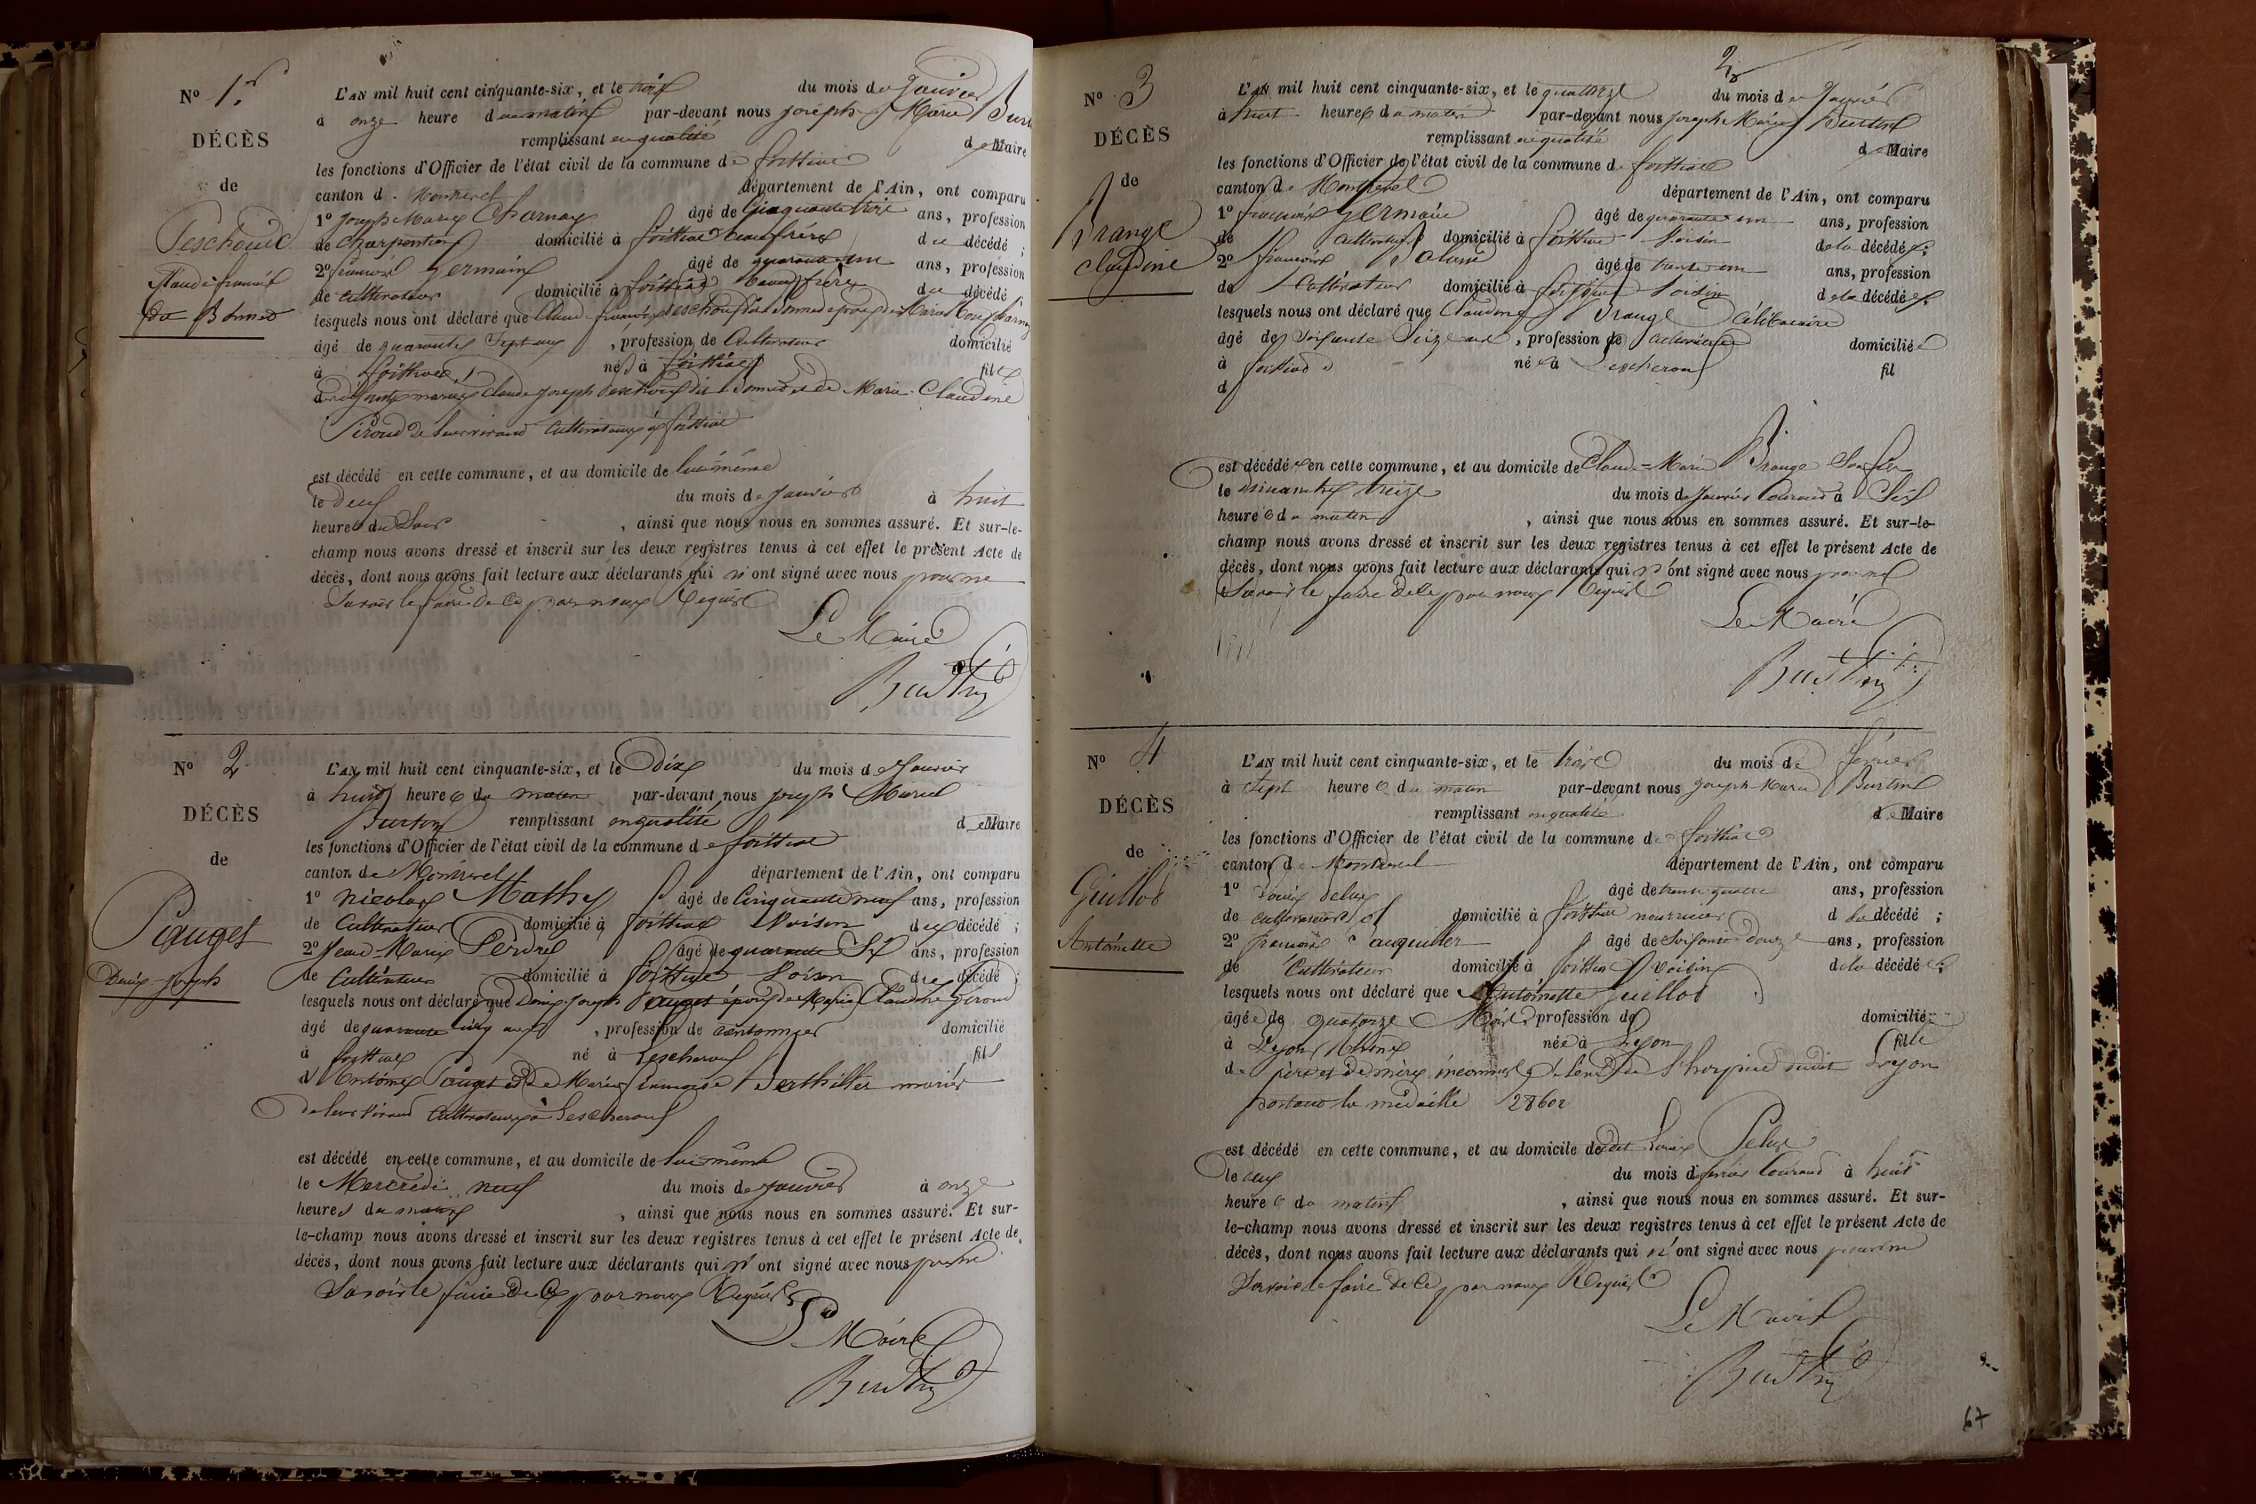 N° 1er
DÉCÈS
de
Peschoud
Claude françois
dit Bonnet
L'AN mil huit cent cinquante-six, et le trois du mois de Janvier
à onze heure du matin par-devant nous joseph Marie Burtin
remplissant en qualité de Maire
les fonctions d'Officier de l'état civil de la commune de foissiat
canton de Montrevel département de l'Ain, ont comparu
1° Joseph Marie Charnay âgé de Cinquante trois ans, profession
de Charpentier domicilié à foissiat beau frère du décédé ;
2° françois Germain âgé de quarante un ans, profession
de Cultivateur domicilié à foissiat beau frère du décédé ;
lesquels nous ont déclaré que Claude françois peschoud dit Bonnet époux de Marie Charnay
âgé de quarante Sept ans, profession de Cultivateur domicilié
à foissiat né à foissiat fils
Claude joseph peschoud dit Bonnet et de Marie Claudine
Piroud de leur vivant Cultivateurs à foissiat
est décédé en cette commune, et au domicile de lui-même
le deux du mois de Janvier à huit
heure du Soir, ainsi que nous nous en sommes assuré. Et sur-le-
champ nous avons dressé et inscrit sur les deux registres tenus à cet effet le présent Acte de
décès, dont nous avons fait lecture aux déclarants qui n'ont signé avec nous pour ne
Savoir le faire de ce par nous Requis
Le Maire
Burtin
N° 2
DÉCÈS
de
Pauget
Denis joseph
L'AN mil huit cent cinquante-six, et le Dix du mois de Janvier
à huit heure du matin par-devant nous joseph Marie
Burtin remplissant en qualité de Maire
les fonctions d'Officier de l'état civil de la commune de foissiat
canton de Montrevel département de l'Ain, ont comparu
1° Nicolas Mathy âgé de Cinquante neuf ans, profession
de Cultivateur domicilié à foissiat Voisin du décédé ;
2° Jean-Marie Perdrix âgé de quarante Six ans, profession
de Cultivateur domicilié à foissiat Voisin du décédé ;
lesquels nous ont déclaré que Denis joseph Pauget époux de Marie Claudine Giroud
âgé de quarante cinq ans, profession de cantonnier domicilié
à foissiat né à Lescheroux fils
d'Antoine Pauget et de Marie françoise Berthillier mariés
de leur vivant Cultivateurs à Lescheroux
est décédé en cette commune, et au domicile de lui-même
le Mercredi neuf du mois de janvier à onze
heures du matin, ainsi que nous nous en sommes assuré. Et sur-
le-champ nous avons dressé et inscrit sur les deux registres tenus à cet effet le présent Acte de
décès, dont nous avons fait lecture aux déclarants qui n'ont signé avec nous pour ne
Savoir le faire De Ce par nous Requis
Le Maire
Burtin
2
N° 3
DÉCÈS
de
Brange
Claudine
L'AN mil huit cent cinquante-six, et le quatorze du mois de Janvier
à huit heures du matin par-devant nous joseph Marie Burtin
remplissant en qualité de Maire
les fonctions d'Officier de l'état civil de la commune de foissiat
canton de Montrevel département de l'Ain, ont comparu
1° françois Germain âgé de quarante un ans, profession
de Cultivateur domicilié à foissiat Voisin de la décédée ;
2° françois âgé de trente un ans, profession
de Cultivateur domicilié à foissiat Voisin de la décédée
lesquels nous ont déclaré que Claudine Brange Célibataire
âgé de Soixante Seize ans, profession de Cultivatrice domiciliée
à foissiat née à Lescheroux fil
d
est décédée en cette commune, et au domicile de Claude-Marie Brange
le dimanche treize du mois de Janvier Courant à Six
heure du matin, ainsi que nous nous en sommes assuré. Et sur-le-
champ nous avons dressé et inscrit sur les deux registres tenus à cet effet le présent Acte de
décès, dont nous avons fait lecture aux déclarants qui n'ont signé avec nous pour ne
Savoir le faire De Ce par nous Requis
Le Maire
Burtin
N° 4
DÉCÈS
de
Guillot
Antoinette
L'AN mil huit cent cinquante-six, et le trois du mois de février
à Sept heure du matin par-devant nous Joseph Marie Burtin
remplissant en qualité de Maire
les fonctions d'Officier de l'état civil de la commune de foissiat
canton de Montrevel département de l'Ain, ont comparu
1° Louis Pelux âgé de trente quatre ans, profession
de cultivateur domicilié à foissiat nourricier de la décédé ;
2° françois âgé de Soixante Douze ans, profession
de Cultivateur domicilié à foissiat Voisin de la décédée ;
lesquels nous ont déclaré que Antoinette Guillot
âgée de quatorze Mois profession de domiciliée
à Lyon Rhône née à Lyon fille
de père et de mère inconnus élève de l'hospice dudit Lyon
portant la médaille 28602
est décédé en cette commune, et au domicile dudit Louis Pelux
le deux du mois de février Courant à huit
heure du matin, ainsi que nous nous en sommes assuré. Et sur-
le-champ nous avons dressé et inscrit sur les deux registres tenus à cet effet le présent Acte de
décès, dont nous avons fait lecture aux déclarants qui n'ont signé avec nous pour ne
Savoir le faire de Ce par nous Requis
Le Maire
Burtin
67